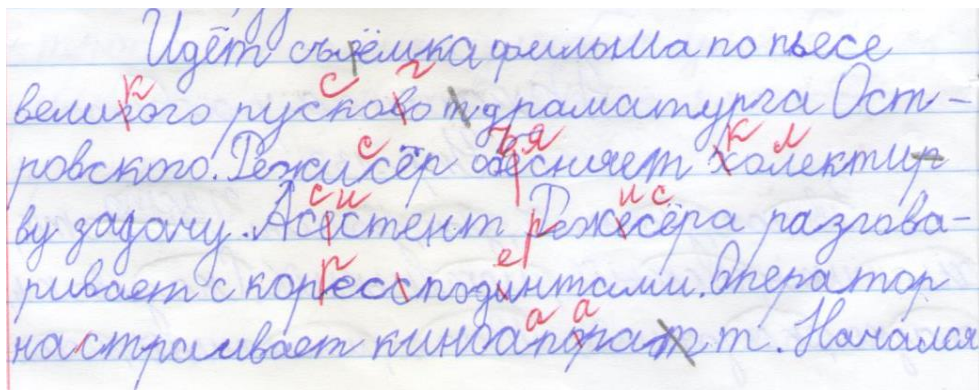 Идёт съёмка фильма по пьесе
великого русково драматурга Ост-
ровского. Режисёр обесняет холекти-
ву задачу. Асистент Режесёра разгова-
ривает с корессподинтами. Оператор
настраивает киноапорат т. Начался